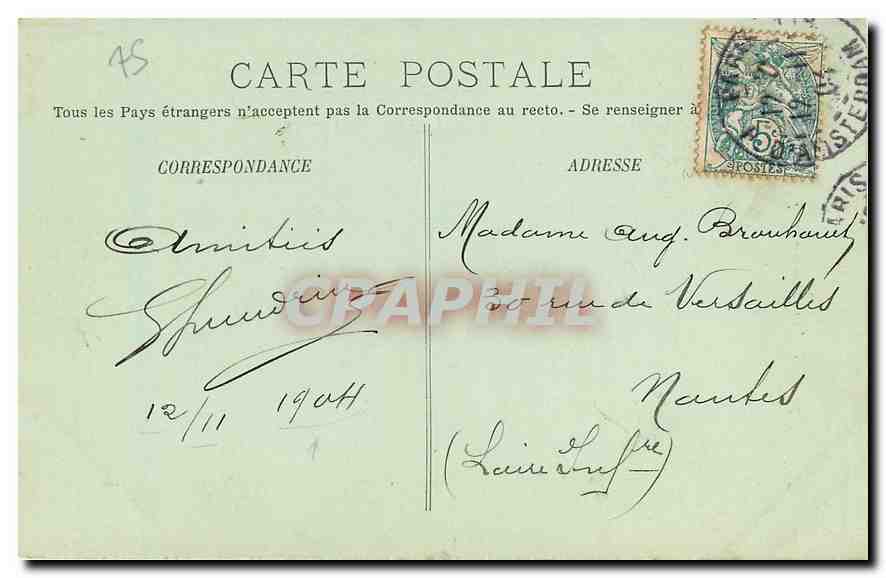 75
CARTE POSTALE
Tous les Pays étrangers n'acceptent pas la Correspondance au recto. - Se renseigner à
CORRESPONDANCE
ADRESSE
5c
POSTES
PARIS
R. D'AMSTERDAM
Amitiés
12/11 1904
Madame Aug.
30 rue de Versailles
Nantes
(Loire Infre)
GRAPHIL